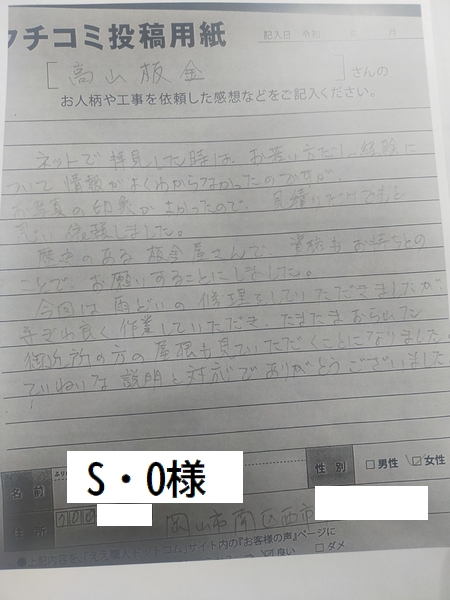 クチコミ投稿用紙
記入日 令和 年 月
[高山板金]さんの
お人柄や工事を依頼した感想などをご記入ください。
ネットで拝見した時は、お若い方だし、経験に
ついて情報がよくわからなかったのですが、
お写真の印象がよかったので、見積りだけでもと
思い依頼しました。
歴史のある板金屋さんで、資格もお持ちとの
ことで、お願いすることにしました。
今回は雨どいの修理をしていただきましたが
手ぎわ良く作業していただき、たまたまおられた
御近所の方の屋根も見ていただくことになりました。
ていねいな説明と対応でありがとうございました
名前
S・O様
性別 □男性 ☑女性
住所
岡山市南区西市
●上記内容を、『ええ職人ドットコム』サイト内の『お客様の声』ページに
☑良い □ダメ